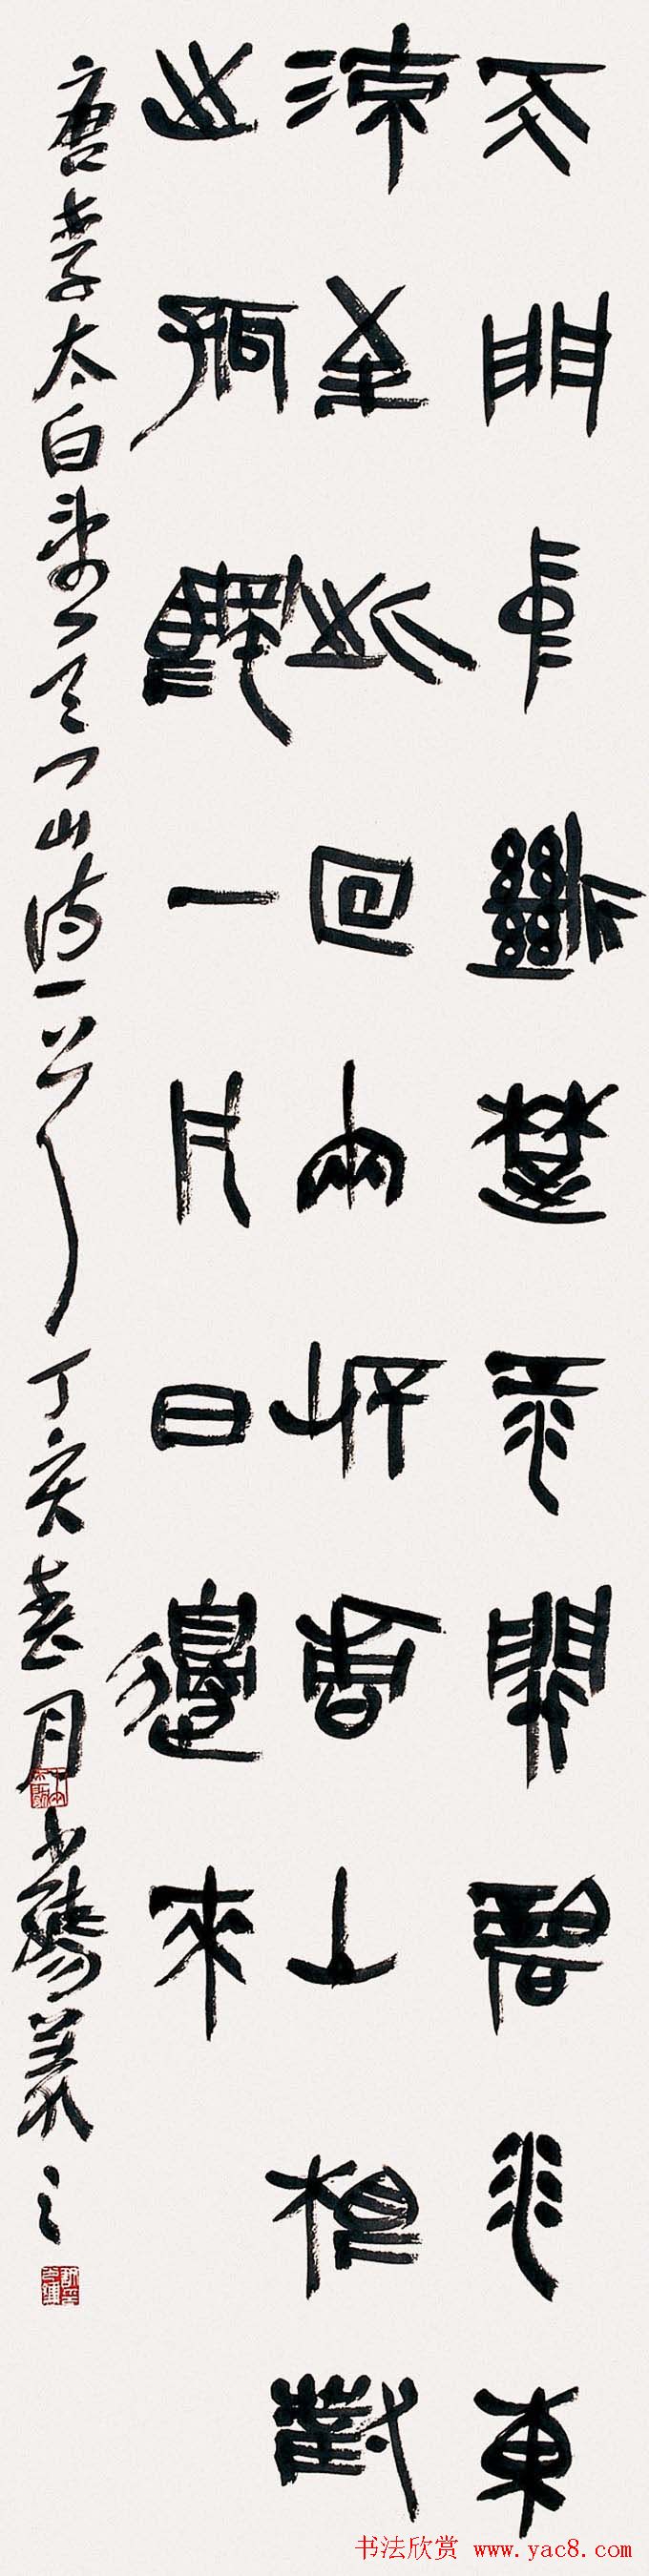 天門中斷楚江開碧水東
流至此回兩岸青山相對
出孤帆一片日邊來
唐李太白望天门山诗一首 丁亥春月
书法欣赏 www.yac8.com